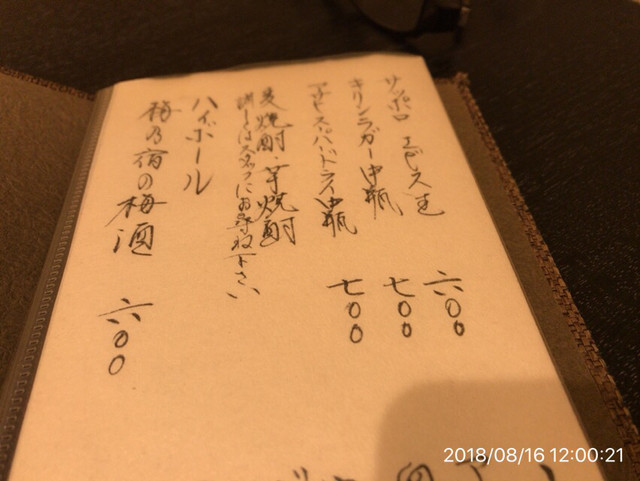 サッポロ エビス生 六〇〇
キリンラガー中瓶 七〇〇
アサヒスーパードライ中瓶 七〇〇
麦焼酎・芋焼酎
詳しくはスタッフにお尋ね下さい
ハイボール
梅乃宿の梅酒 六〇〇
2018/08/16 12:00:21